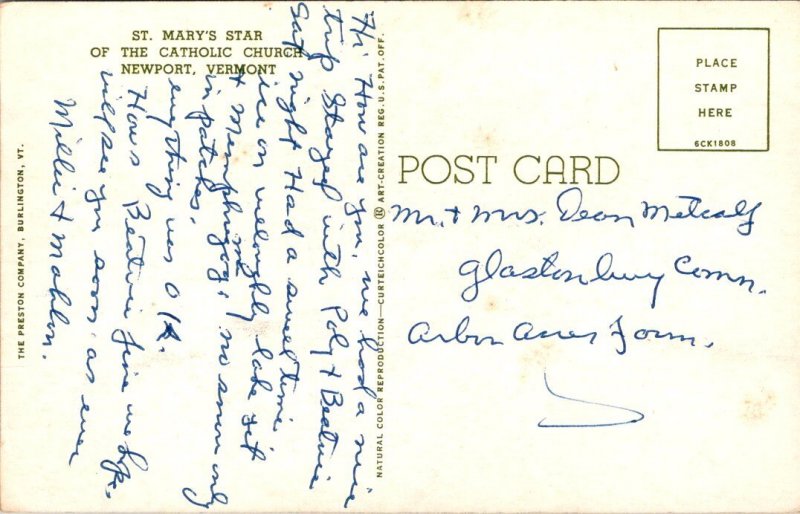 ST. MARY'S STAR
OF THE CATHOLIC CHURCH
NEWPORT, VERMONT
Hi How are you, we had a nice
trip Stayed with Poly + Beatrice
Sat night Had a swell time.
ice on weloughly lake sit
+ Memphremagog, no snow only
in patches.
everything was O.K.
How's Beatrice fine we hope.
will see you soon. as ever
Millie + Mahlon.
THE PRESTON COMPANY, BURLINGTON, VT.
NATURAL COLOR REPRODUCTION—CURTEICHCOLOR ® ART-CREATION REG. U.S. PAT. OFF.
PLACE
STAMP
HERE
6CK1808
POST CARD
Mr. + Mrs. Dean Metcalf
Glastonbury Conn.
Arbor Acres Farm.